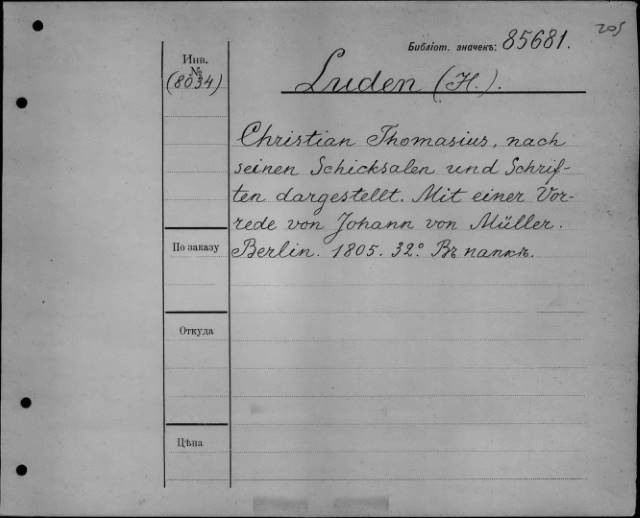 205
Библіот. значекъ: 85681.
Инв.
№
(8034)
Luden (H.).
Christian Thomasius, nach
seinen Schicksalen und Schrif-
ten dargestellt. Mit einer Vor-
rede von Johann von Müller.
Berlin. 1805. 32° Въ папкѣ.
По заказу
Откуда
Цѣна